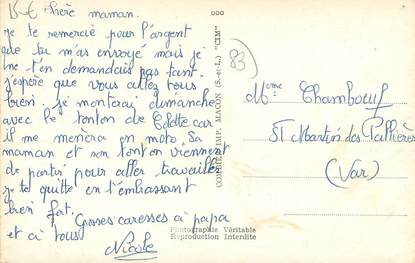 15 €
Chère maman.
Je te remercie pour l'argent
que tu m'as envoyé mais je
ne t'en demandais pas tant.
j'espère que vous allez tous
bien. je monterai dimanche
avec le tonton de Colette car
il me mènera en moto. Sa
maman et son tonton viennent
de partir pour aller travailler
je te quitte en t'embrassant
bien fort.
Grosses caresses à papa
et à tous
Nicole
COMBIER IMP. MACON (S.-et-L.) "CIM"
Photographie Véritable
Reproduction Interdite
83
Mme Chamboeuf
St Martin des Pallières
(Var)